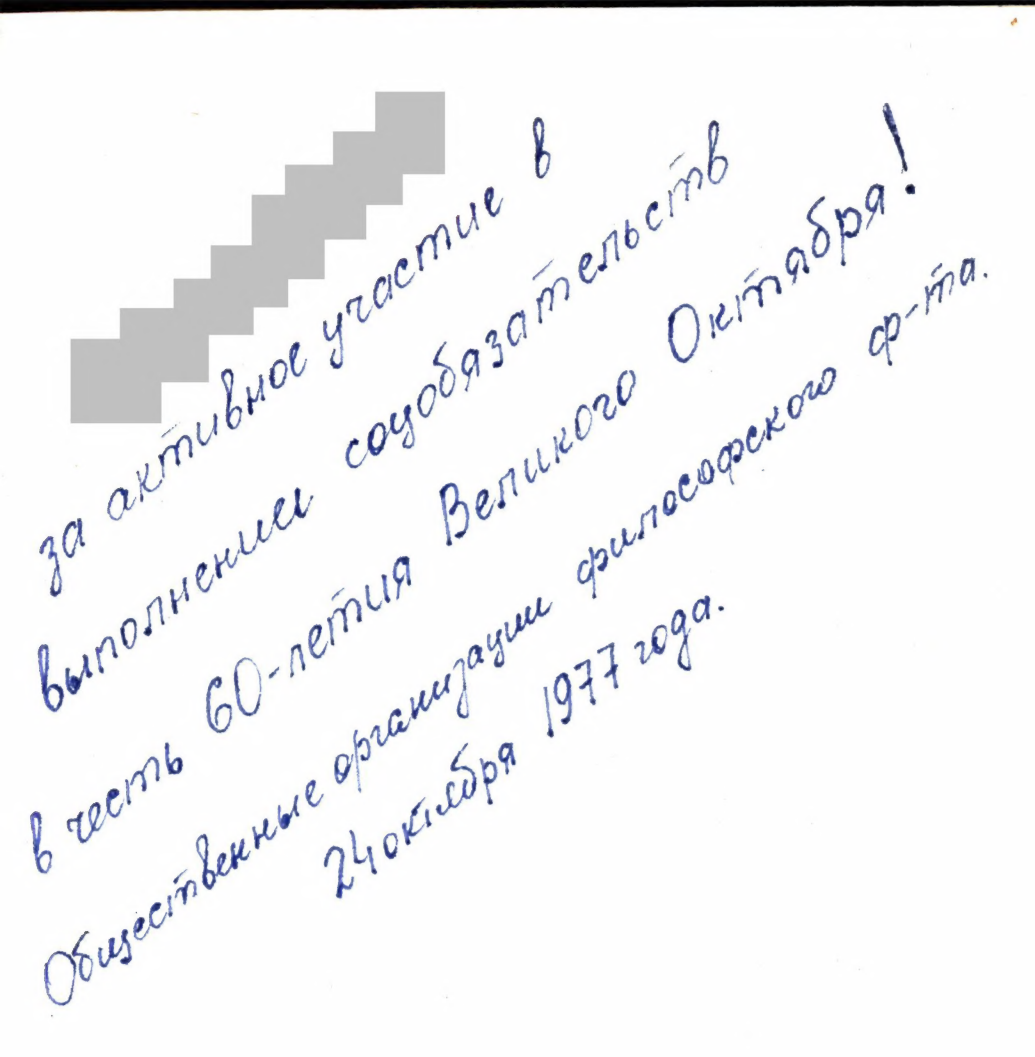 за активное участие в
выполнении соцобязательств
в честь 60-летия Великого Октября!
Общественные организации философского ф-та.
24 октября 1977 года.